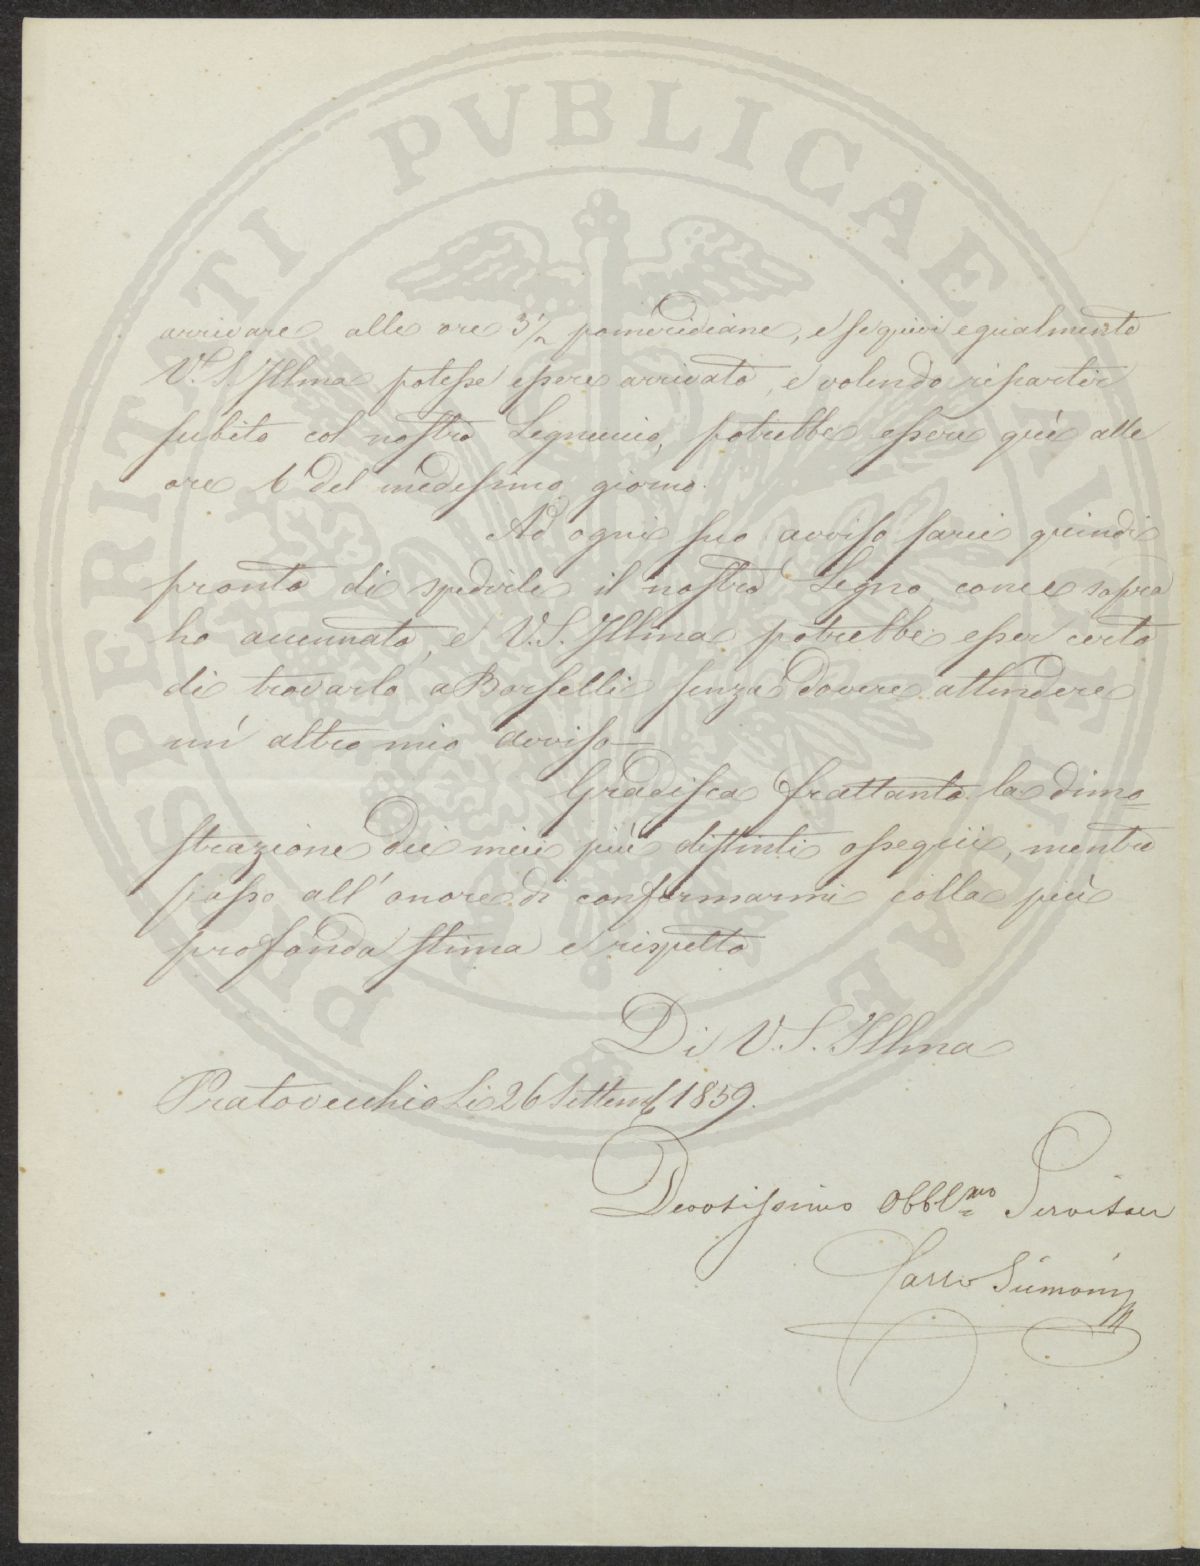 arrivare alle ore 3½ pomeridiane, e se quivi egualmente
V. S. Illma potesse essere arrivato, e volendo ripartir
subito col nostro Legnuccio, potrebbe essere quì alle
ore 6 del medesimo giorno.
Ad ogni suo avviso sarei quindi
pronto di spedirle il nostro Legno come sopra
ho accennato, e V. S. Illma potrebbe esser certo
di trovarlo a Borselli senza dovere attendere
un' altro mio avviso —
Gradisca frattanto la dimo=
strazione dei miei più distinti ossequii, mentre
passo all' onore di confermarmi colla più
profonda stima e rispetto
Di V. S. Illma
Pratovecchio Li 26 Settemb 1859.
Devotissimo Obblmo Servitore
Carlo Simoni
PROSPERITATI PVBLICAE AVGENDAE